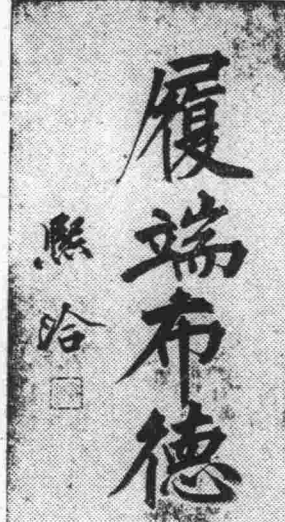 履端布德
熙洽